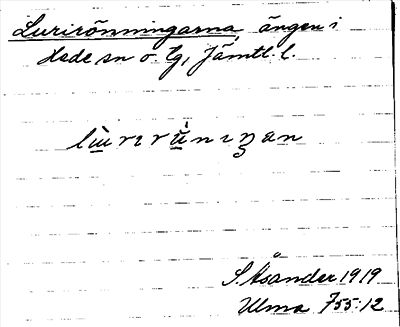 Lurirönningarna, ängen i
Hede sn o. tg, Jämtl. l.
lu̱rırù̱nıŋan
S. Åsander 1919
Ulma 755:12